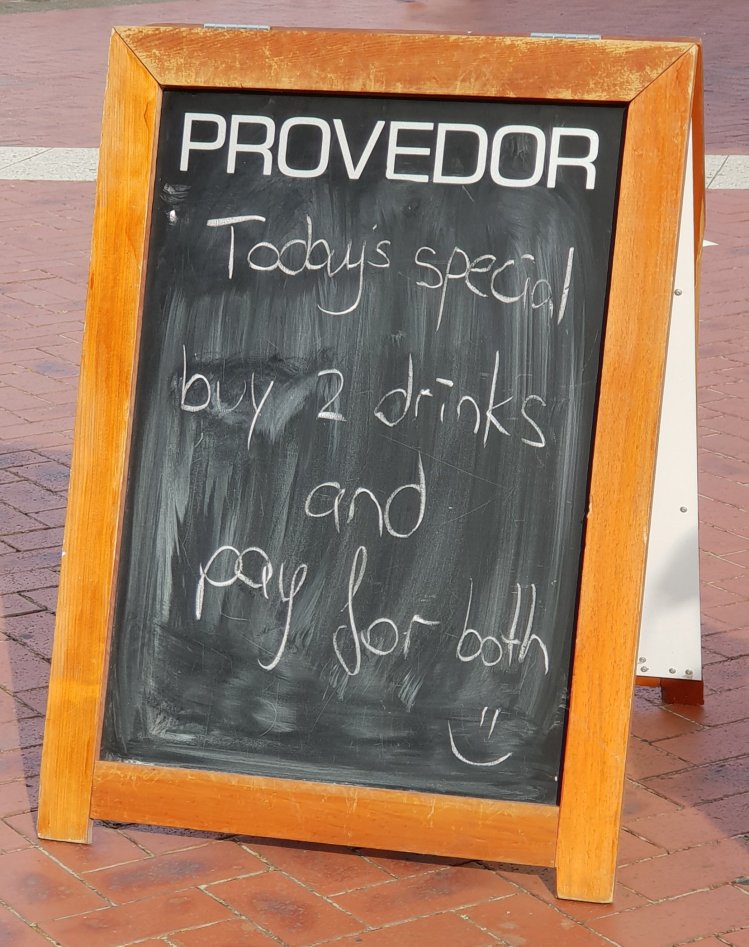 PROVEDOR
Today's special
buy 2 drinks
and
pay for both